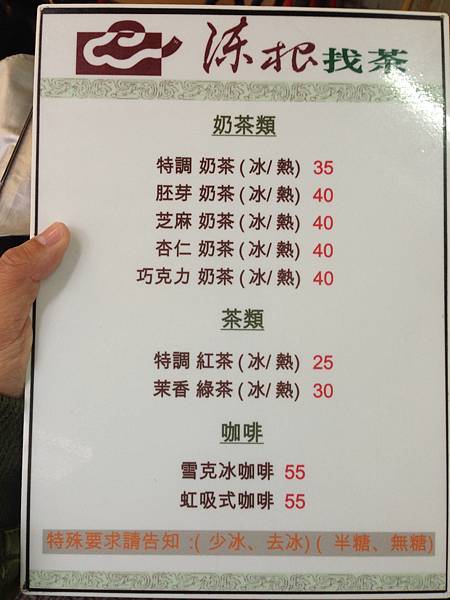 涑根找茶
奶茶類
特調 奶茶 ( 冰/ 熱) 35
胚芽 奶茶 ( 冰/ 熱) 40
芝麻 奶茶 ( 冰/ 熱) 40
杏仁 奶茶 ( 冰/ 熱) 40
巧克力 奶茶 ( 冰/ 熱) 40
茶類
特調 紅茶 ( 冰/ 熱) 25
茉香 綠茶 ( 冰/ 熱) 30
咖啡
雪克冰咖啡 55
虹吸式咖啡 55
特殊要求請告知 :( 少冰、去冰) ( 半糖、無糖)